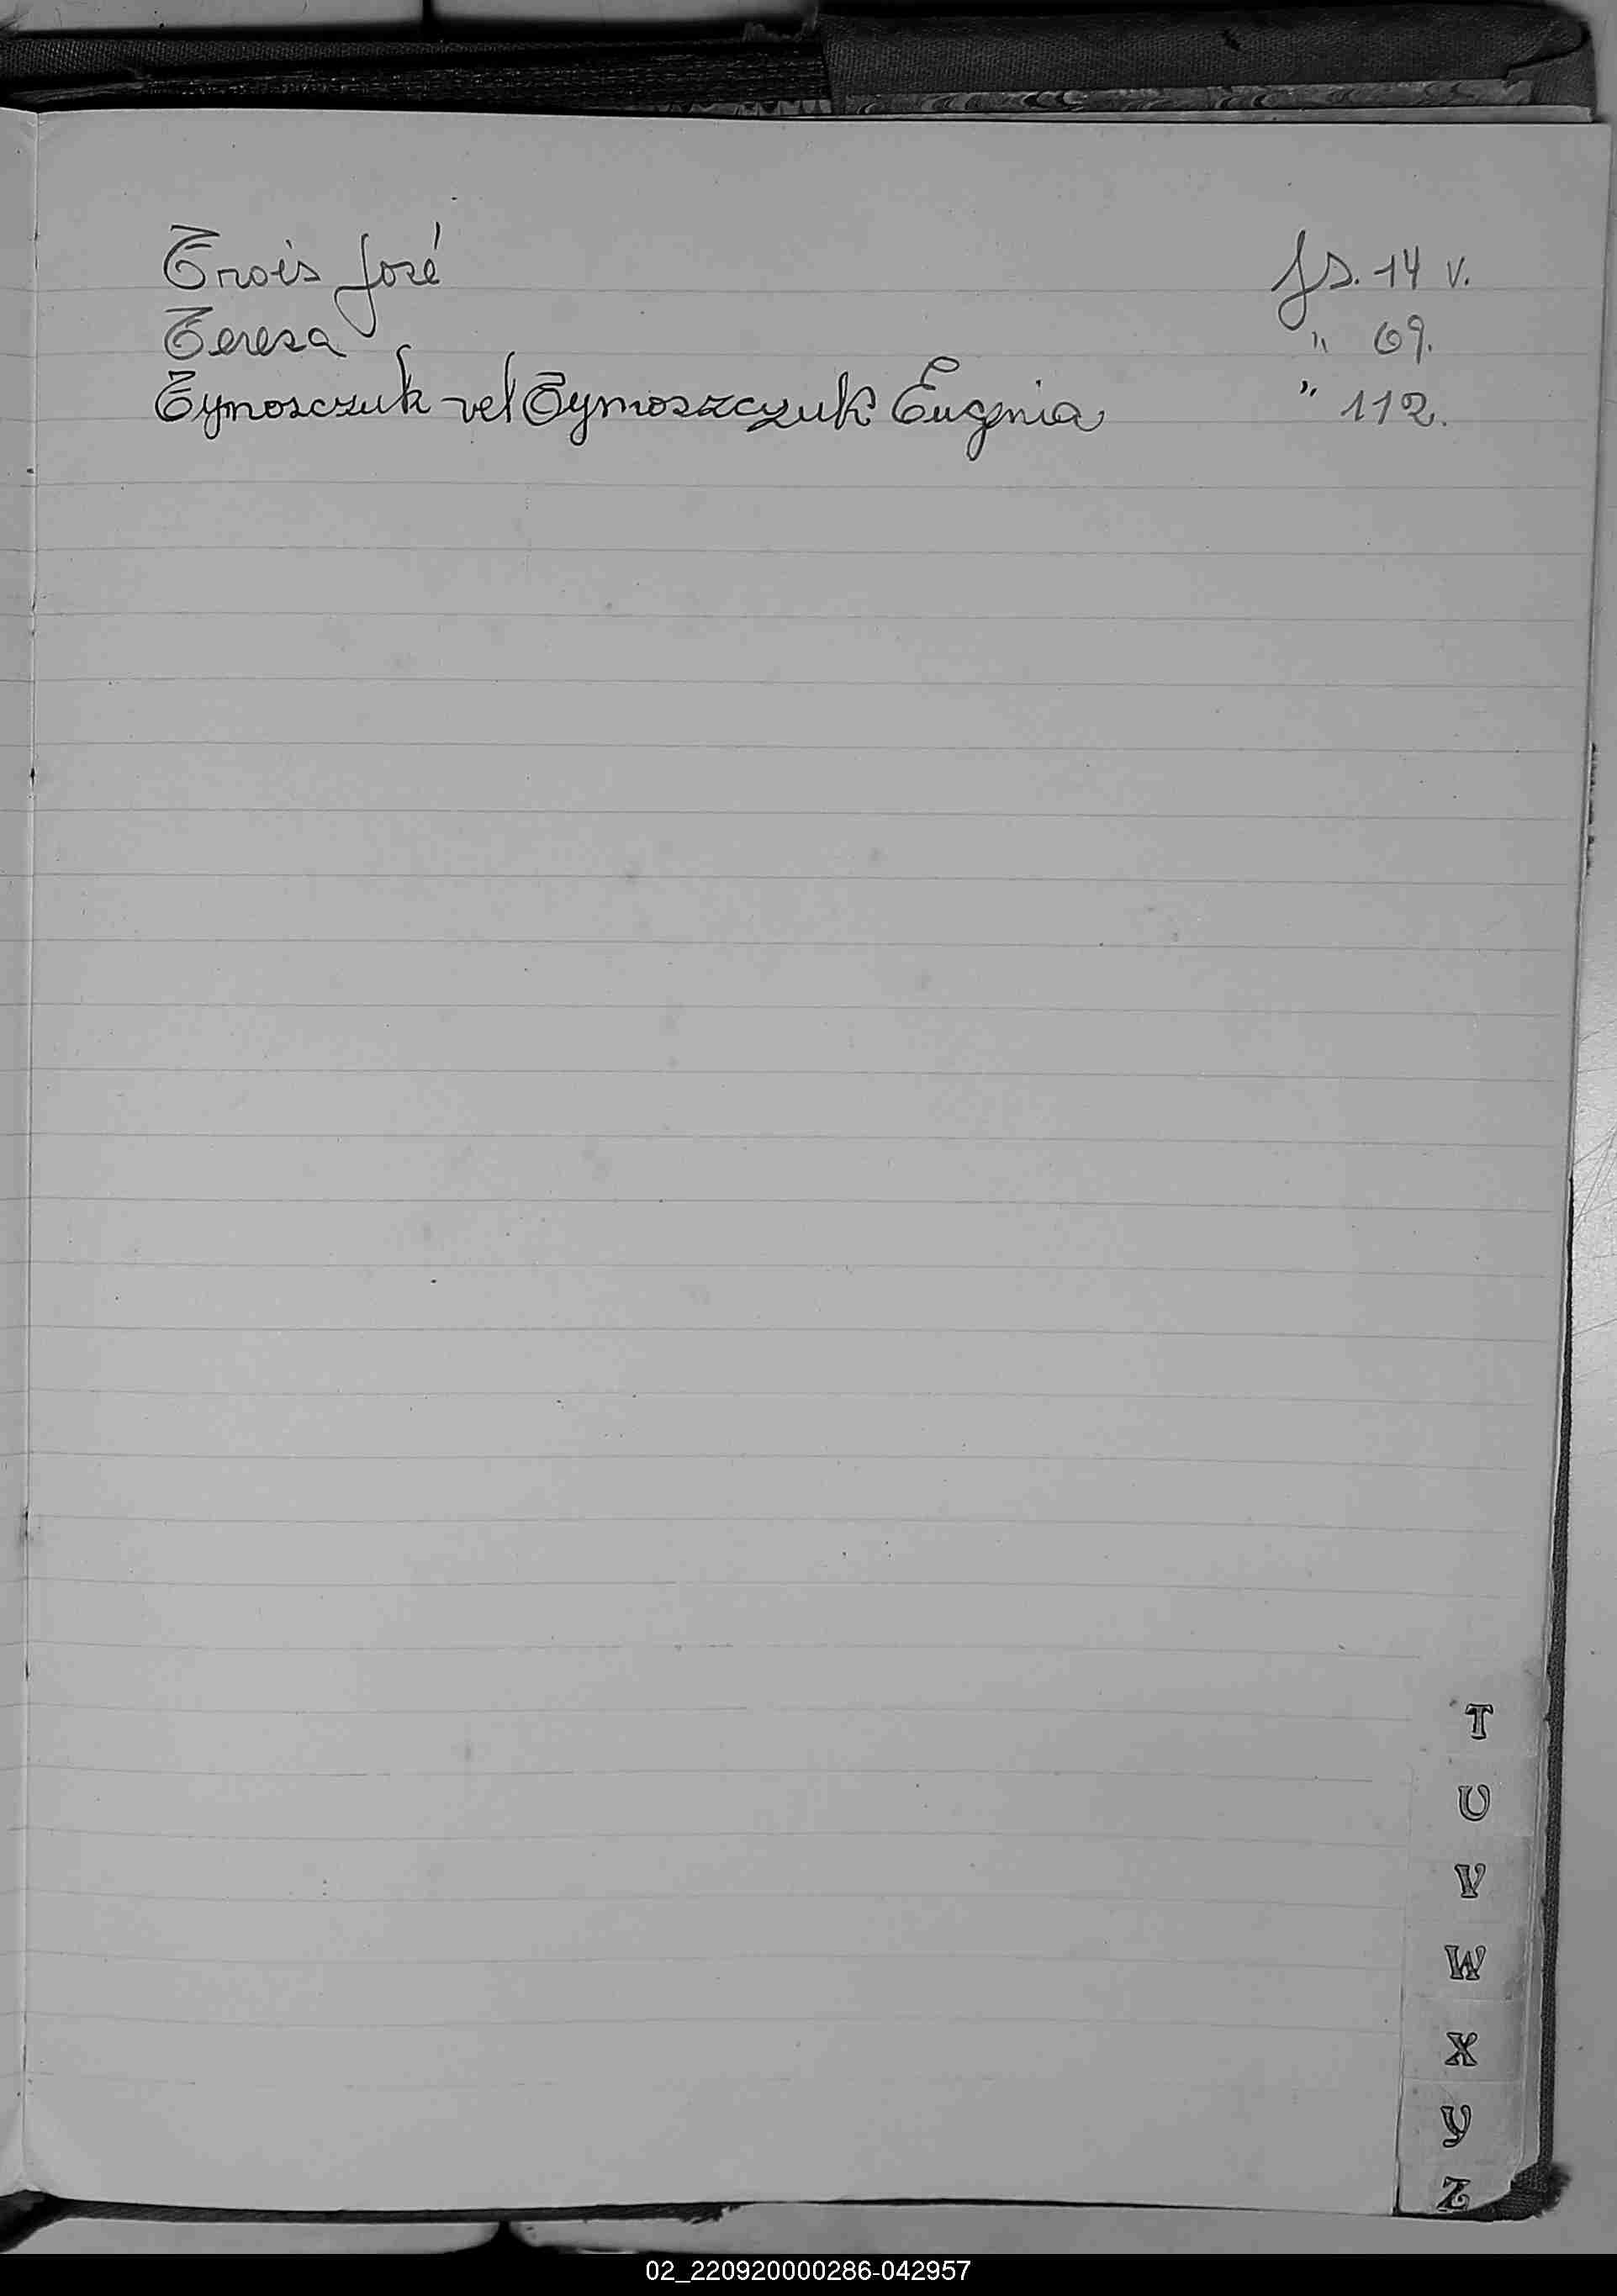 Trois José fs. 14 v.
Teresa " 69.
Tymosczuk vel Tymoszczuk Eugenia " 112.
T
U
V
W
X
Y
Z
02_220920000286-042957